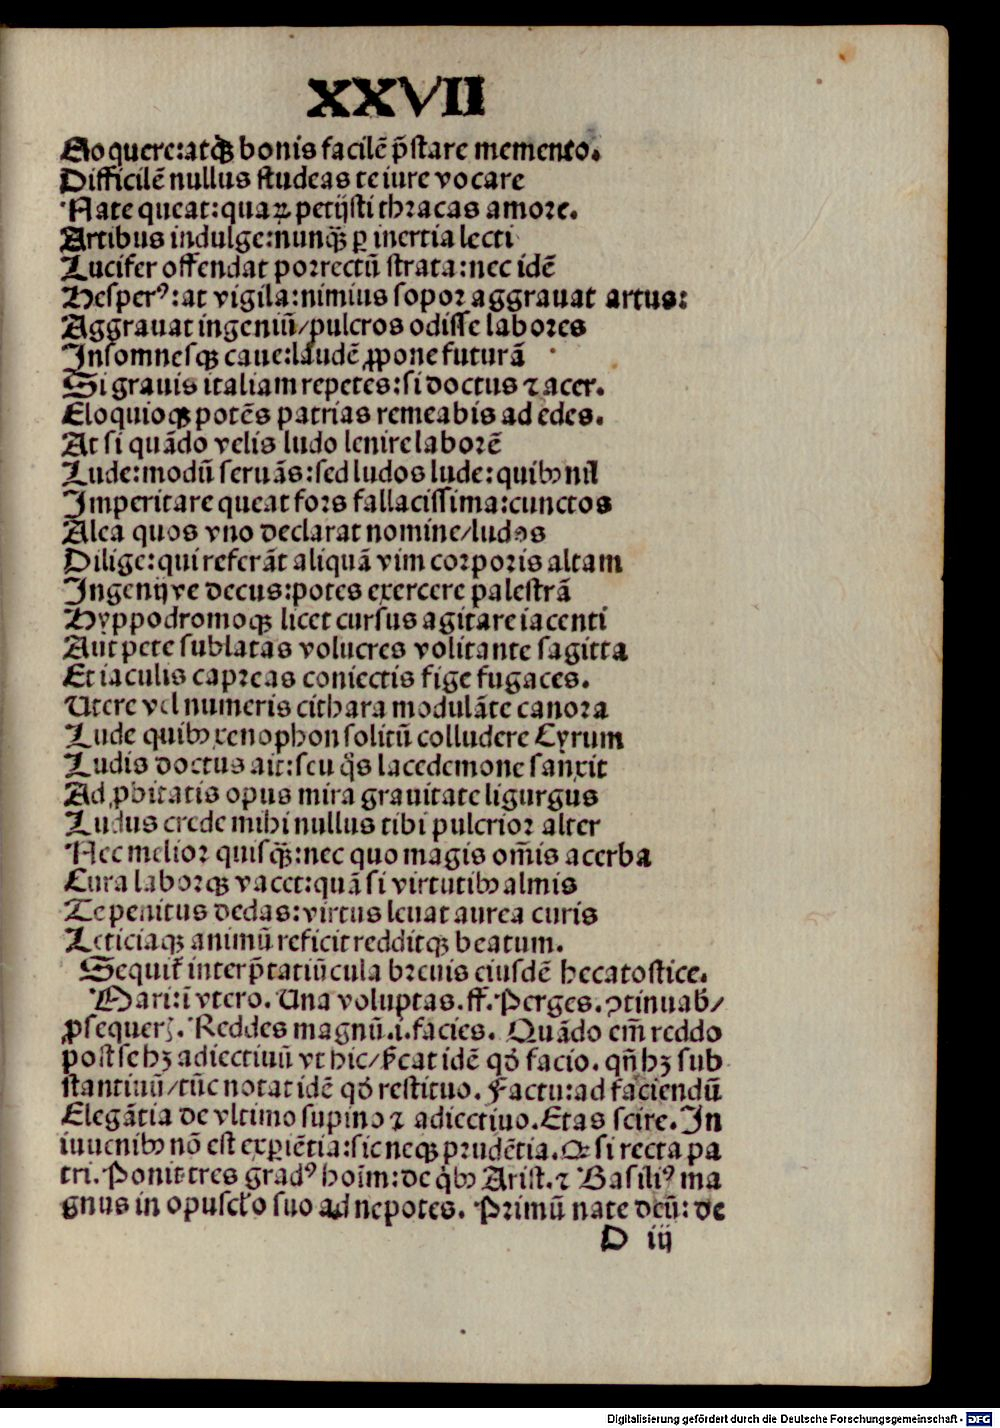 XXVII
Eo quere:atqꝫ bonis facilē p̄stare memento.
Difficilē nullus studeas te iure vocare
Nate queat:quaꝝ petijsti thracas amore.
Artibus indulge:nunqꝫ̄ ꝑ inertia lecti
Lucifer offendat porrectū strata:nec idē
Hesperꝰ:at vigila:nimius sopor aggrauat artus:
Aggrauat ingeniū/pulcros odisse labores
Insomnesqꝫ caue:laudē ꝓpone futurā
Si grauis italiam repetes:si doctus ⁊ acer.
Eloquioqꝫ potēs patrias remeabis ad edes.
At si quādo velis ludo lenire laborē
Lude:modū seruās:sed ludos lude:quibꝰ nil
Imperitare queat fors fallacissima:cunctos
Alea quos vno declarat nomine/ludos
Dilige:qui referāt aliquā vim corporis altam
Ingenijve decus:potes exercere palestrā
Hyppodromoqꝫ licet cursus agitare iacenti
Aut pete sublatas volucres volitante sagitta
Et iaculis capreas coniectis fige fugaces.
Utere vel numeris cithara modulāte canora
Lude quibꝰ xenophon solitū colludere Cyrum
Ludis doctus ait:seu q̄s lacedemone sanxit
Ad ꝓbitatis opus mira grauitate ligurgus
Ludus crede mihi nullus tibi pulcrior alter
Nec melior quisqꝫ̄:nec quo magis om̄is acerba
Cura laborqꝫ vacet:quā si virtutibꝰ almis
Te penitus dedas:virtus leuat aurea curis
Leticiaqꝫ animū reficit redditqꝫ beatum.
Sequit̄ interp̄tatiūcula breuis eiusdē hecatostice.
Mari:ī vtero. Una voluptas.ff. Perges.ꝯtinuab̄/
ꝓsequerꝭ. Reddes magnū.i.facies. Quādo em̄ reddo
post se hꝫ adiectiuū vt hic/ſ̄cat idē qd̓ facio. qn̄ hꝫ sub
stantiuū/tūc notat idē qd̓ restituo. Factu:ad faciendū
Elegātia de vltimo supino ⁊ adiectiuo. Etas scire. In
iuuenibꝰ nō est exꝑiētia:sic neqꝫ prudētia. Qꝛ si recta pa
tri. Ponit tres gradꝰ hoīm:de q̄bꝰ Arist. ⁊ Basiliꝰ ma
gnus in opusclo suo ad nepotes. Primū nate deū: de
D iij
Digitalisierung gefördert durch die Deutsche Forschungsgemeinschaft - DFG